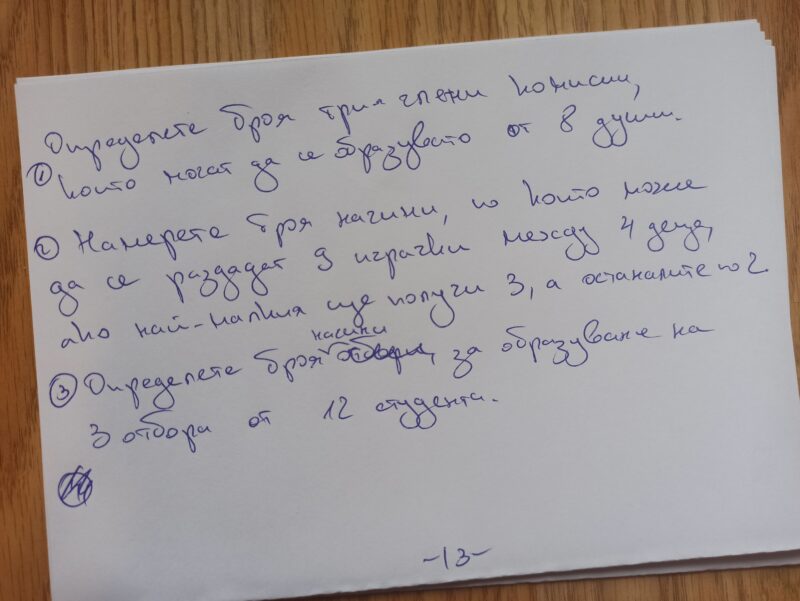 Определете броя тричленни комисии,
① които могат да се образувато от 8 души.
② Намерете броя начини, по които може
да се раздадат 9 играчки между 4 деца,
ако най-малкия ще получи 3, а останалите по 2.
③ Определете броя начини за образуване на
3 отбора от 12 студента.
-13-